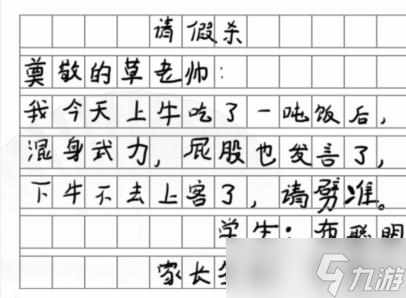 请假杀
奠敬的草老帅：
我今天上牛吃了一吨饭后，
混身武力，屁股也发言了，
下牛不去上客了，请劈准。
学生：布聪明
家长
九游